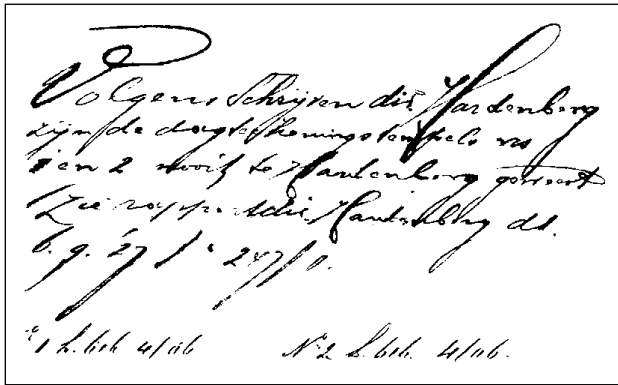 Volgens Schrijven dir. Hardenberg
zijn de dagteekeningstempels no
1 en 2 nooit te Hardenberg geweest
Zie rapport dir. Hardenberg dd.
6.9.'27 n° 247/0.
n° 1 h. heb 4/06 N° 2 h. heb. 4/06.